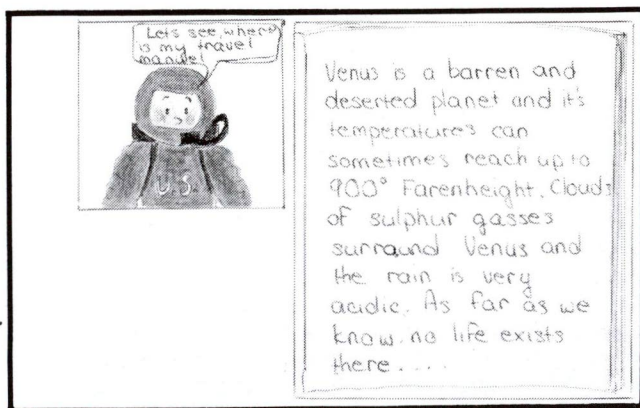 Lets see, where
is my travel
manuel
U.S.
Venus is a barren and
deserted planet and it's
temperatures can
sometimes reach up to
900° Farenheight. Clouds
of sulphur gasses
surround Venus and
the rain is very
acidic. As far as we
know no life exists
there....